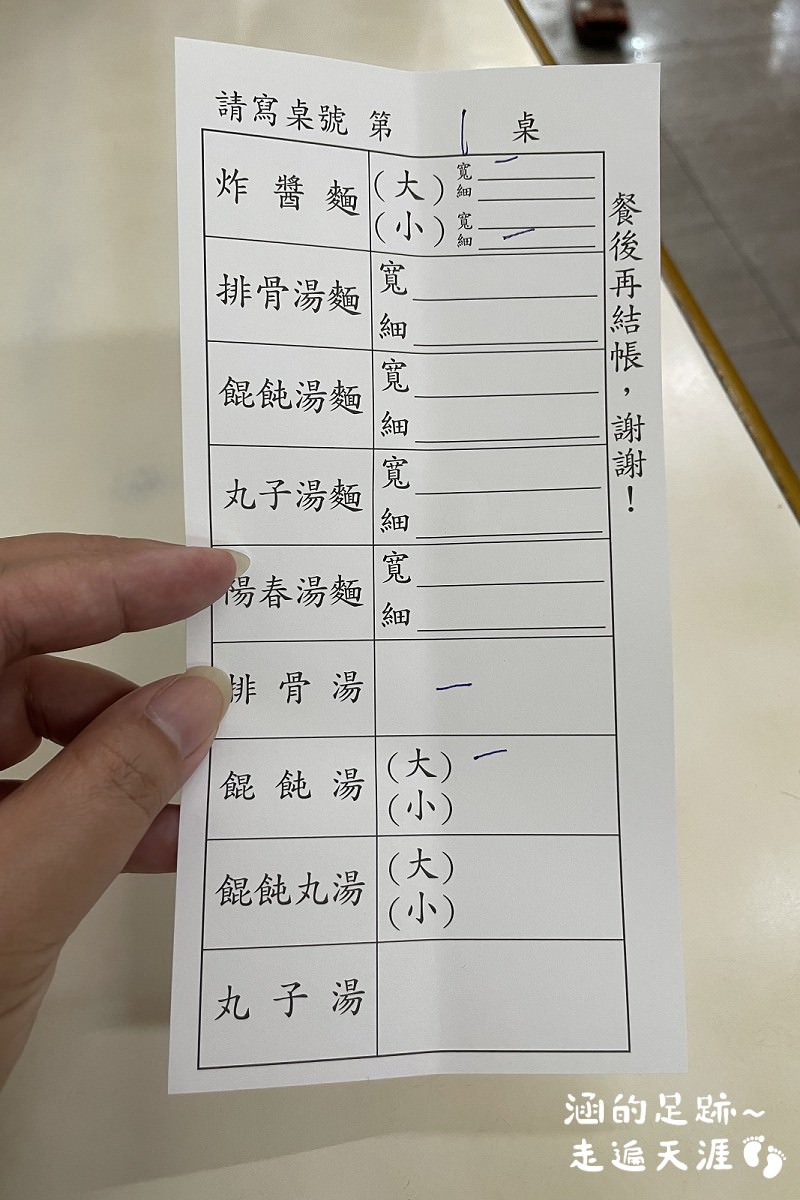 請寫桌號 第 1 桌
炸醬麵 (大) 寬 一
細
(小) 寬
細 一
排骨湯麵 寬
細
餛飩湯麵 寬
細
丸子湯麵 寬
細
陽春湯麵 寬
細
排骨湯 一
餛飩湯 (大) 一
(小)
餛飩丸湯 (大)
(小)
丸子湯
餐後再結帳，謝謝！
涵的足跡~
走遍天涯